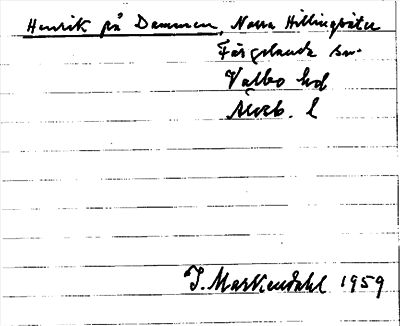 Henrik på Dammen, Norra Hillingsäter
Färgelanda sn.
Valbo hd
Älvsb. l
I. Markendahl 1959